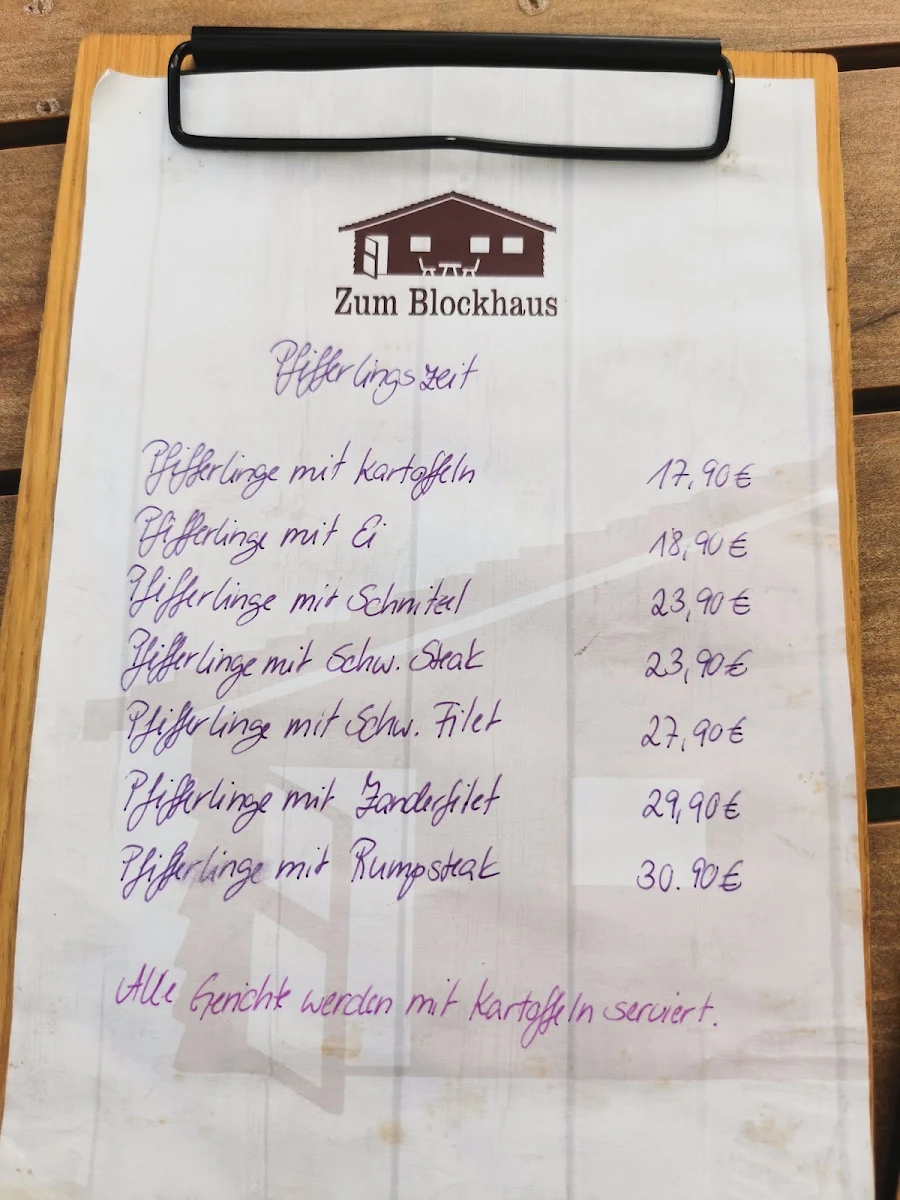 Zum Blockhaus
Pfifferlingszeit
Pfifferlinge mit Kartoffeln 17,90€
Pfifferlinge mit Ei 18,90€
Pfifferlinge mit Schnitzel 23,90€
Pfifferlinge mit Schw. Steak 23,90€
Pfifferlinge mit Schw. Filet 27,90€
Pfifferlinge mit Zanderfilet 29,90€
Pfifferlinge mit Rumpsteak 30.90€
Alle Gerichte werden mit Kartoffeln serviert.